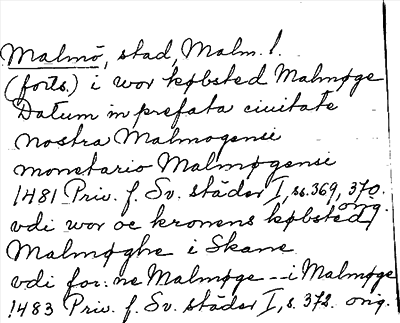 Malmö, stad, Malm. l.
(forts.) i wor købsted Malmøge
Datum in prefata ciuitate
nostra Malmogensi
monetario Malmøgensi
1481 Priv. f. Sv. städer I, ss. 369, 370. orig.
vdi wor oc kronens købsted
Malmøghe i Skane
vdi for:ne Malmøge -- i Malmøge
1483 Priv. f. Sv. städer I, s. 372. orig.